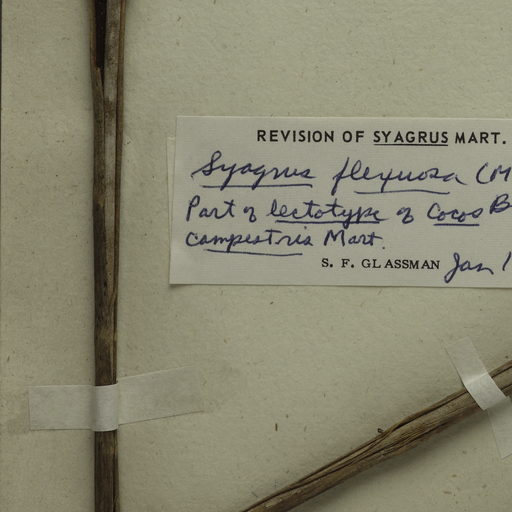 REVISION OF SYAGRUS MART.
Syagrus flexuosa (M
Part of lectotype of Cocos
campestris Mart.
S. F. GLASSMAN Jan 1